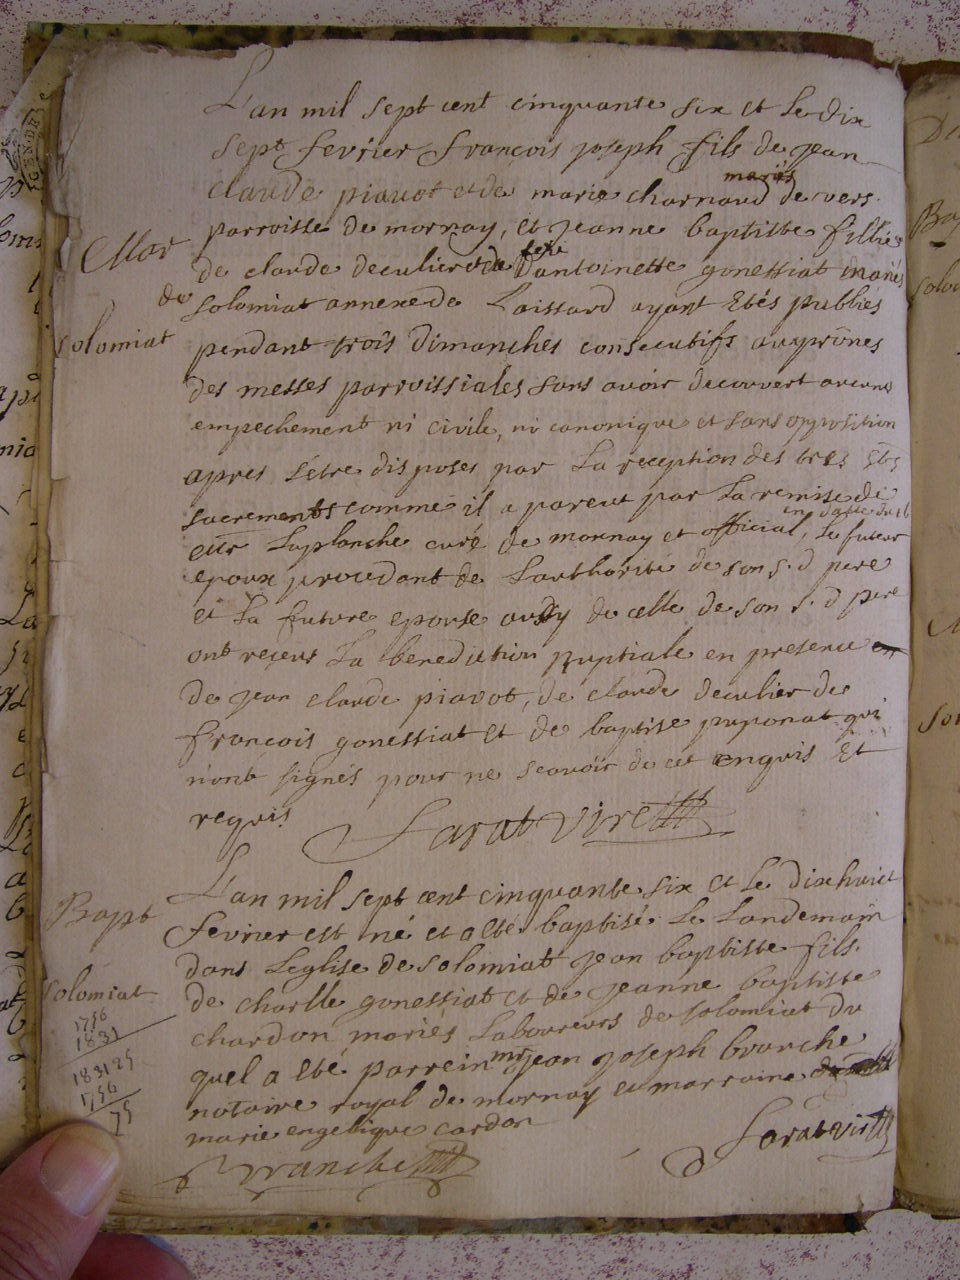 L'an mil sept cent cinquante six et le dix
sept fevrier françois joseph fils de jean
claude piavot et de marie charnaud mariés de vers
parroisse de mornay, et jeanne baptiste fillie
Mar
de claude deculier et de antoinette gonessiat mariés
de
solomiat annexe de Laissard ayant etés publiés
solomiat
pendant trois dimanches consecutifs aux prônes
des messes parroissiales sans avoir decouvert aucuns
empechement ni civile, ni canonique et sans opposition
apres s'etre disposes par la reception des tres Sts
sacrements comme il a pareut par la remise de
en datte du 16
Laplanche curé de mornay et official, Le futeur
epoux procedant de L'authorité de son s. d pere
et La future epouse aussy de celle de son s. d pere
ont reçeus La benediction nuptiale en presence
de jean claude piavot, de claude deculier de
françois gonessiat et de baptise puponat qui
n'ont signés pour ne scavoir de cet enquis Et
requis
Sarat vire
L'an mil sept cent cinquante six et Le dixhuict
Bapt
fevrier est né et a eté baptisé Le Landemain
dans Leglise de solomiat jean baptiste fils
solomiat
de charlle gonessiat et de jeanne baptiste
1756
chardon mariés Laboureurs de solomiat du
1831
quel a eté parrein mr jean joseph branche
183125
notaire royal de mornay et marraine
1756
marie engelique cardon
75
Sarat vire
Branche